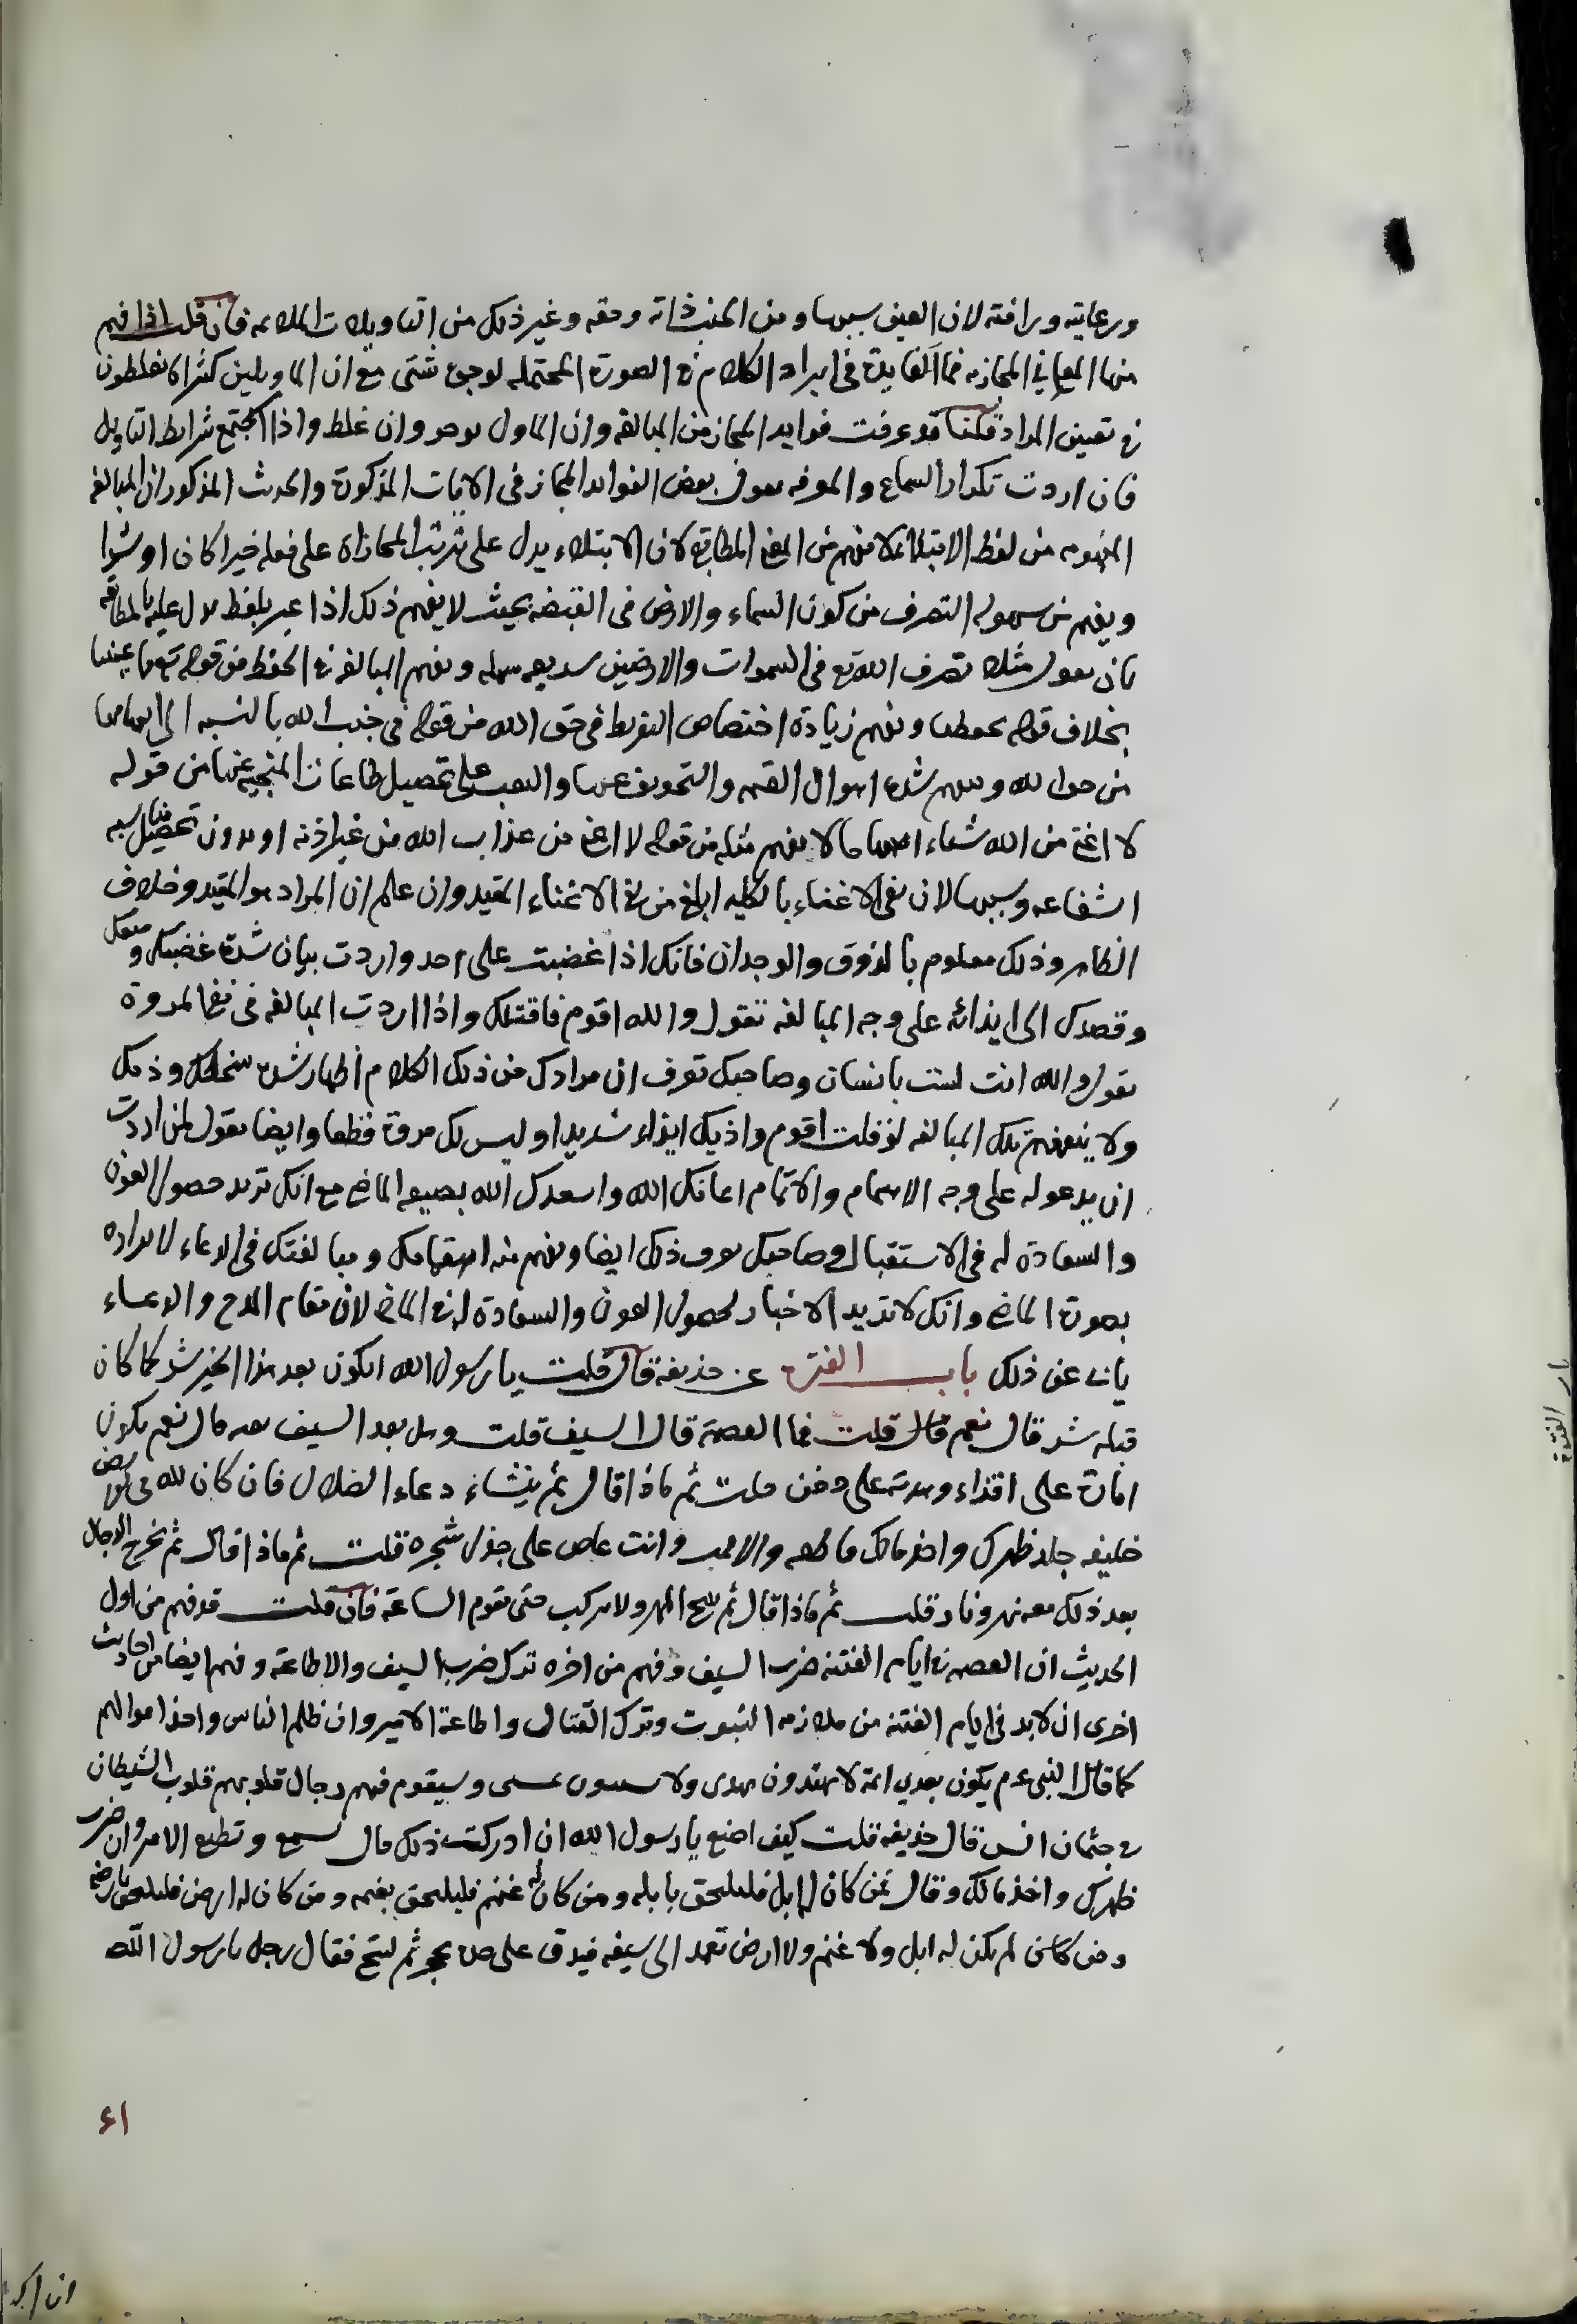 ورعايته ورافته لان العين سببها ومن الجنب شانه وحقه وغير ذلك من التاويلات الملايمه فان قلت اذا فهم
منها المعاني المجازيه فما الفايدة في ايراد الكلام في الصورة المحتمله لوجوه شتى مع ان الماولين كثيرا ما يغلطون
في تعيين المراد قلنا قد عرفت فوايد المجاز من المبالغه وان الماول يوجر وان غلط واذا اجتمع شرايط التاويل
فان اردت تكرار السماع والمعرفه بعض الفوايد المجاز في الايات المذكورة والحديث المذكور ان المبالغه
المفهومه من لفظ الابتلاء لا تفهم من المعنى المطابقي لان الابتلاء يدل على ترتب المجازاة على فعله خيرا كان او شرا
ويفهم من سهوله التصرف من كون السماء والارض في القبضه بحيث لا يفهم ذلك اذا عبر بلفظ يدل عليه بالمطابقه
بان يقول مثلا تصرف الله تع في السموات والارضين سريعه سهله ويفهم المبالغه في الحفظ من قوله باعيننا
بخلاف قوله بحفظنا ويفهم زيادة اختصاص التفريط في حق الله من قوله في جنب الله بالنسبه الى
من حق الله ويفهم شدة اهوال القيمه والتخويف عنها والتعب على تحصيل طاعات المنجيه عنها من قوله
لا اغني من الله شيئا ما لا يفهم مثله من قوله لا اغني من عذاب الله من غير اذنه او بدون تحصيل
الشفاعه وسببها لان نفي الاغناء بالكليه ابلغ من نفي الاغناء المقيد وان علم ان المراد هو المقيد وخلاف
الظاهر وذلك معلوم بالذوق والوجدان فانك اذا غضبت على احد واردت بيان شدة غضبك
وقصدك الى ايذائه على وجه المبالغه تقول والله اقوم فاقتلك واذا اردت المبالغه في نفي المروة
تقول والله انت لست بانسان وصاحبك تعرف ان مرادك من ذلك الكلام اظهار شدة سخطك وذمك
ولا ينفهم تلك المبالغه لو قلت اقوم واذيك ايذاء شديدا وليس لك مروة قطعا وايضا تقول لمن اردت
ان يدعو له على وجه الاهتمام والاتمام اعانك الله واسعدك الله بصيغه الماضي مع انك تريد حصول العون
والسعادة له في الاستقبال وصاحبك يعرف ذلك ايضا ويفهم منه اهتمامك ومبالغتك في الدعاء لايراده
بصورة الماضي وانك لا تريد الاخبار لحصول العون والسعادة له في الماضي لان مقام المدح والدعاء
ياب عن ذلك باب الفتن عن حذيفه قال قلت يا رسول الله ايكون بعد هذا الخير شر كما كان
قبله شر قال نعم قال قلت فما العصمة قال السيف قلت وهل بعد السيف بقيه قال نعم يكون
امارة على اقذاء وهدنة على دخن قلت ثم ماذا قال ثم ينشاء دعاء الضلال فان كان لله في الارض
خليفه جلد ظهرك واخذ مالك فاطعه والا فمت وانت عاض على جذل شجره قلت ثم ماذا قال ثم يخرج الدجال
بعد ذلك معه نهر ونار قلت ثم ماذا قال ثم ينتج المهر ولا يركب حتى تقوم الساعة فان قلت قد فهم من اول
الحديث ان العصمه في ايام الفتنه ضرب السيف وفهم من اخره ترك ضرب السيف والاطاعة وفهم ايضا من احاديث
اخرى ان لابد في ايام الفتنه من ملازمه البيوت وترك القتال واطاعة الامير وان ظلم الناس واخذ اموالهم
كما قال النبي عم يكون بعدي ائمة لا يهتدون بهدى ولا يستنون بسنتي وسيقوم فيهم رجال قلوبهم قلوب الشيطان
في جثمان انس قال حذيفه قلت كيف اصنع يا رسول الله ان ادركت ذلك قال تسمع وتطيع الامر وان ضرب
ظهرك واخذ مالك وقال فمن كان له ابل فليلحق بابله ومن كان له غنم فليلحق بغنمه ومن كان له ارض فليلحق بارضه
ومن كان لم يكن له ابل ولا غنم ولا ارض تعمد الى سيفه فيدق على حده بحجر ثم لينج فقال رجل يا رسول الله